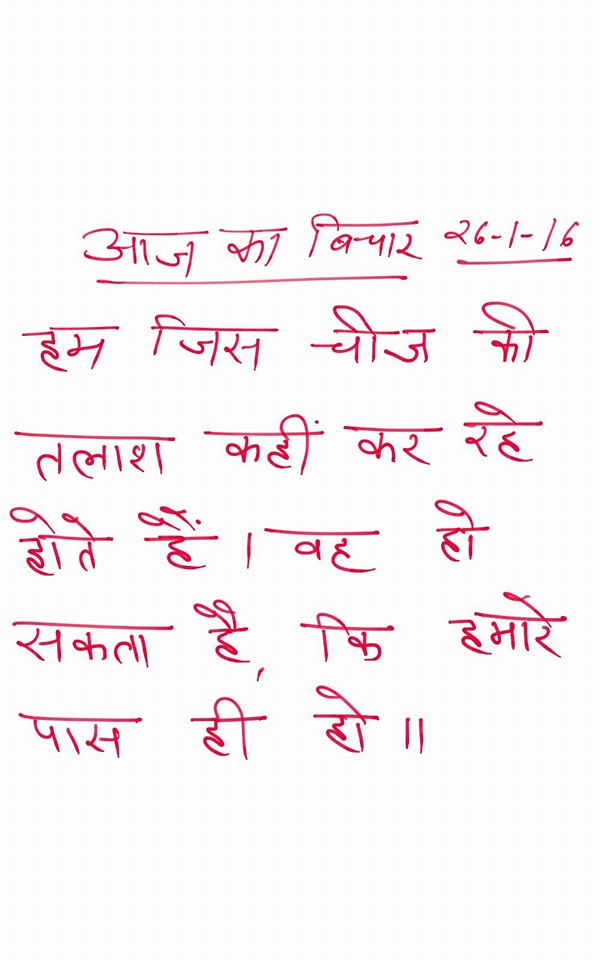 आज का बिचार 26-1-16
हम जिस चीज की
तलाश कहीं कर रहे
होते हैं । वह हो
सकता है, कि हमारे
पास ही हो ॥